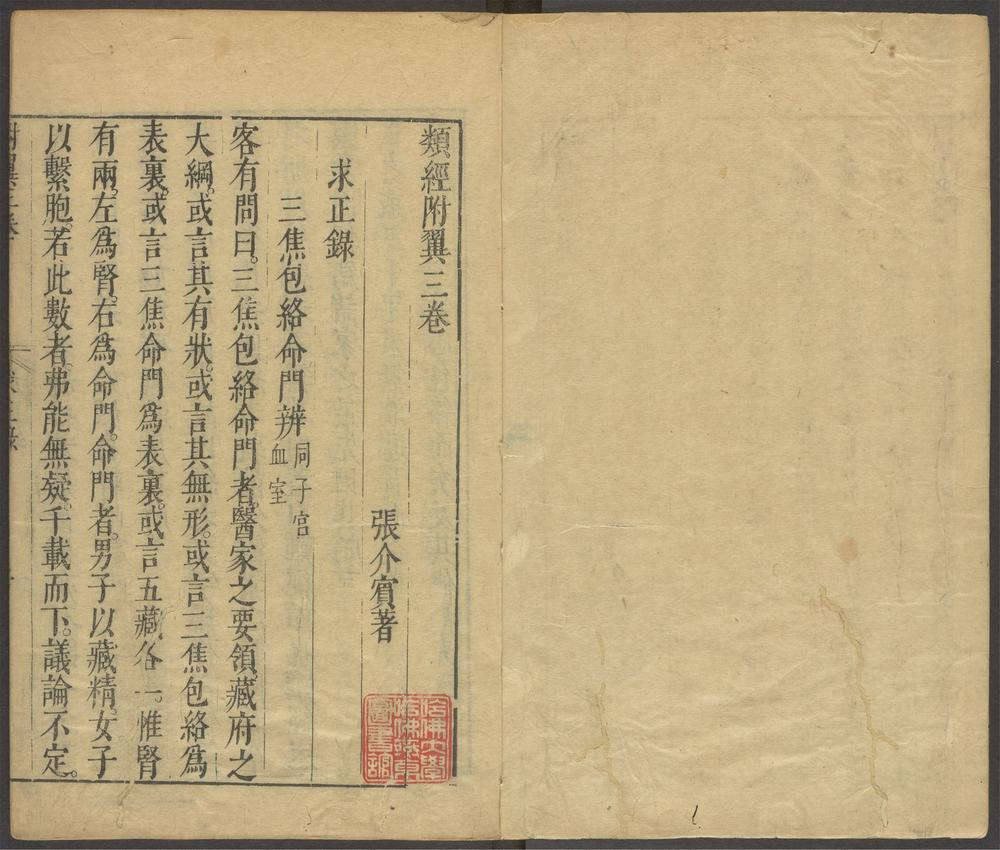 類經附翼三卷
張介賓著
求正錄
三焦包絡命門辨
同子宫
血室
客有問曰。三焦包絡命門者。醫家之要領。藏府之
大綱。或言其有狀。或言其無形。或言三焦包絡爲
表裏。或言三焦命門爲表裏。或言五藏各一。惟腎
有兩。左爲腎。右爲命門。命門者。男子以藏精。女子
以繫胞。若此數者。弗能無疑。千載而下。議論不定。
哈佛大學
哈佛燕京
圖書館